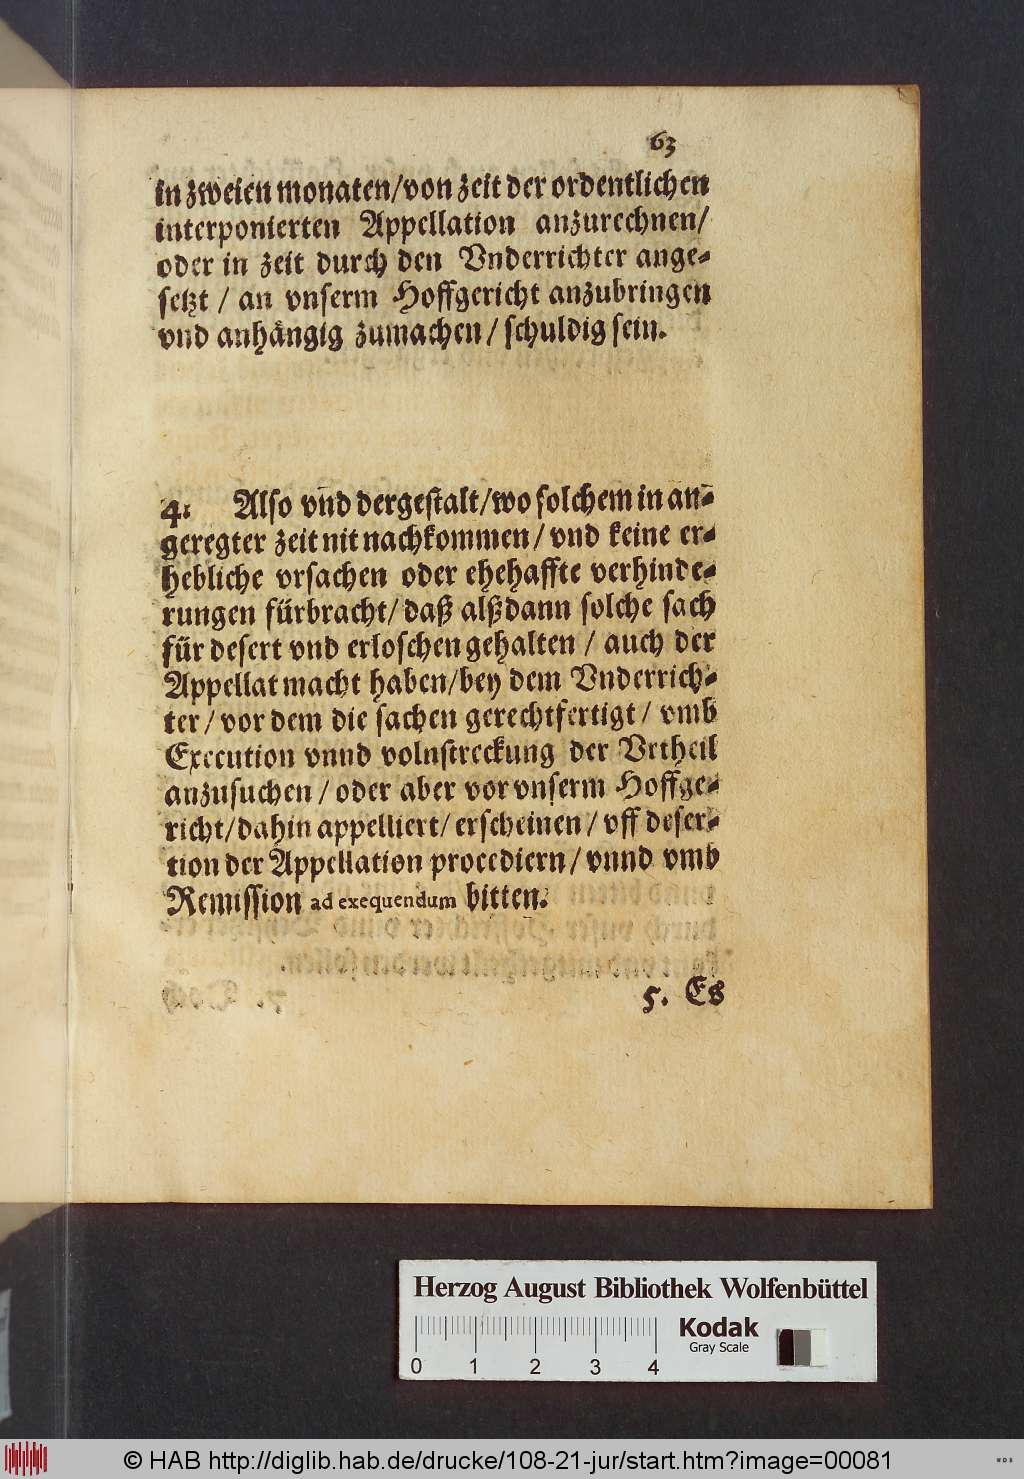 63
in zweien monaten/von zeit der ordentlichen
interponierten Appellation anzurechnen/
oder in zeit durch den Vnderrichter ange-
setzt / an vnserm Hoffgericht anzubringen
vnd anhängig zumachen / schuldig sein.
4. Also vñd dergestalt/wo solchem in an-
geregter zeit nit nachkommen / vnd keine er-
hebliche vrsachen oder ehehaffte verhinde-
rungen fürbracht/ daß alßdann solche sach
für desert vnd erloschen gehalten / auch der
Appellat macht haben/bey dem Vnderrich-
ter / vor dem die sachen gerechtfertigt / vmb
Execution vnnd volnstreckung der Vrtheil
anzusuchen / oder aber vor vnserm Hoffge-
richt/dahin appelliert/ erscheinen / vff deser-
tion der Appellation procediern / vnnd vmb
Remission ad exequendum bitten.
5. Es
Herzog August Bibliothek Wolfenbüttel
Kodak
Gray Scale
0 1 2 3 4
© HAB http://diglib.hab.de/drucke/108-21-jur/start.htm?image=00081